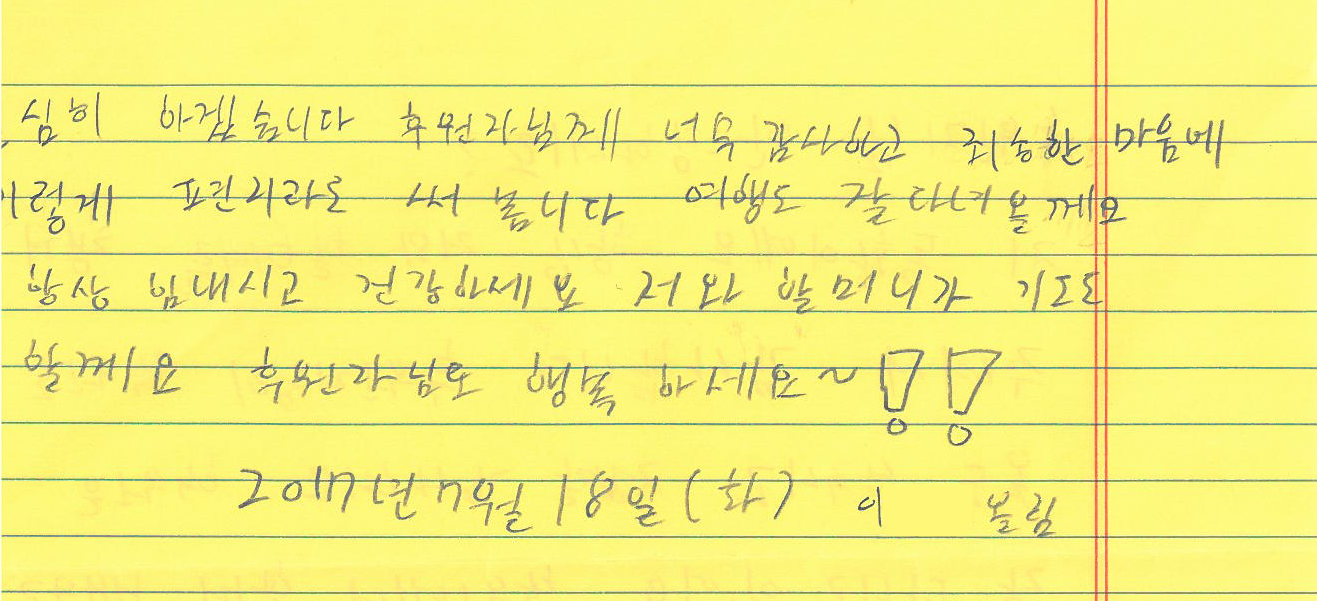 심히 하겠습니다 후원자님께 너무 감사하고 죄송한 마음에
이렇게 프린지라도 써 봅니다 여행도 잘 다녀 올께요
항상 힘내시고 건강하세요 저와 할머니가 기도도
할께요 후원자님도 행복 하세요~!!
2017년 7월 18일 (화) 이 올림